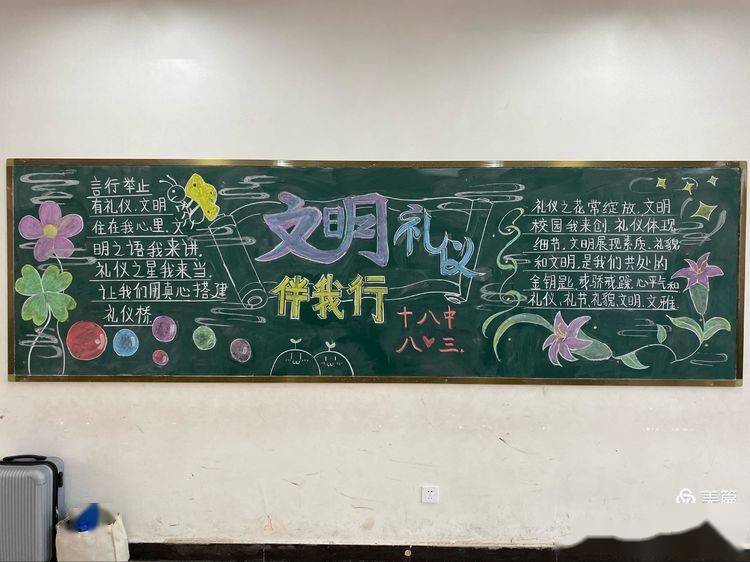 言行举止
有礼仪.文明
住在我心里.文
明之语我来讲.
礼仪之星我来当.
让我们用真心搭建
礼仪桥.
文明礼仪
伴我行
十八中
八♥三.
礼仪之花常绽放.文明
校园我来创.礼仪体现
细节.文明展现素质.礼貌
和文明.是我们共处的
金钥匙.戒骄戒躁.心平气和
礼仪.礼节.礼貌.文明.文雅
美篇